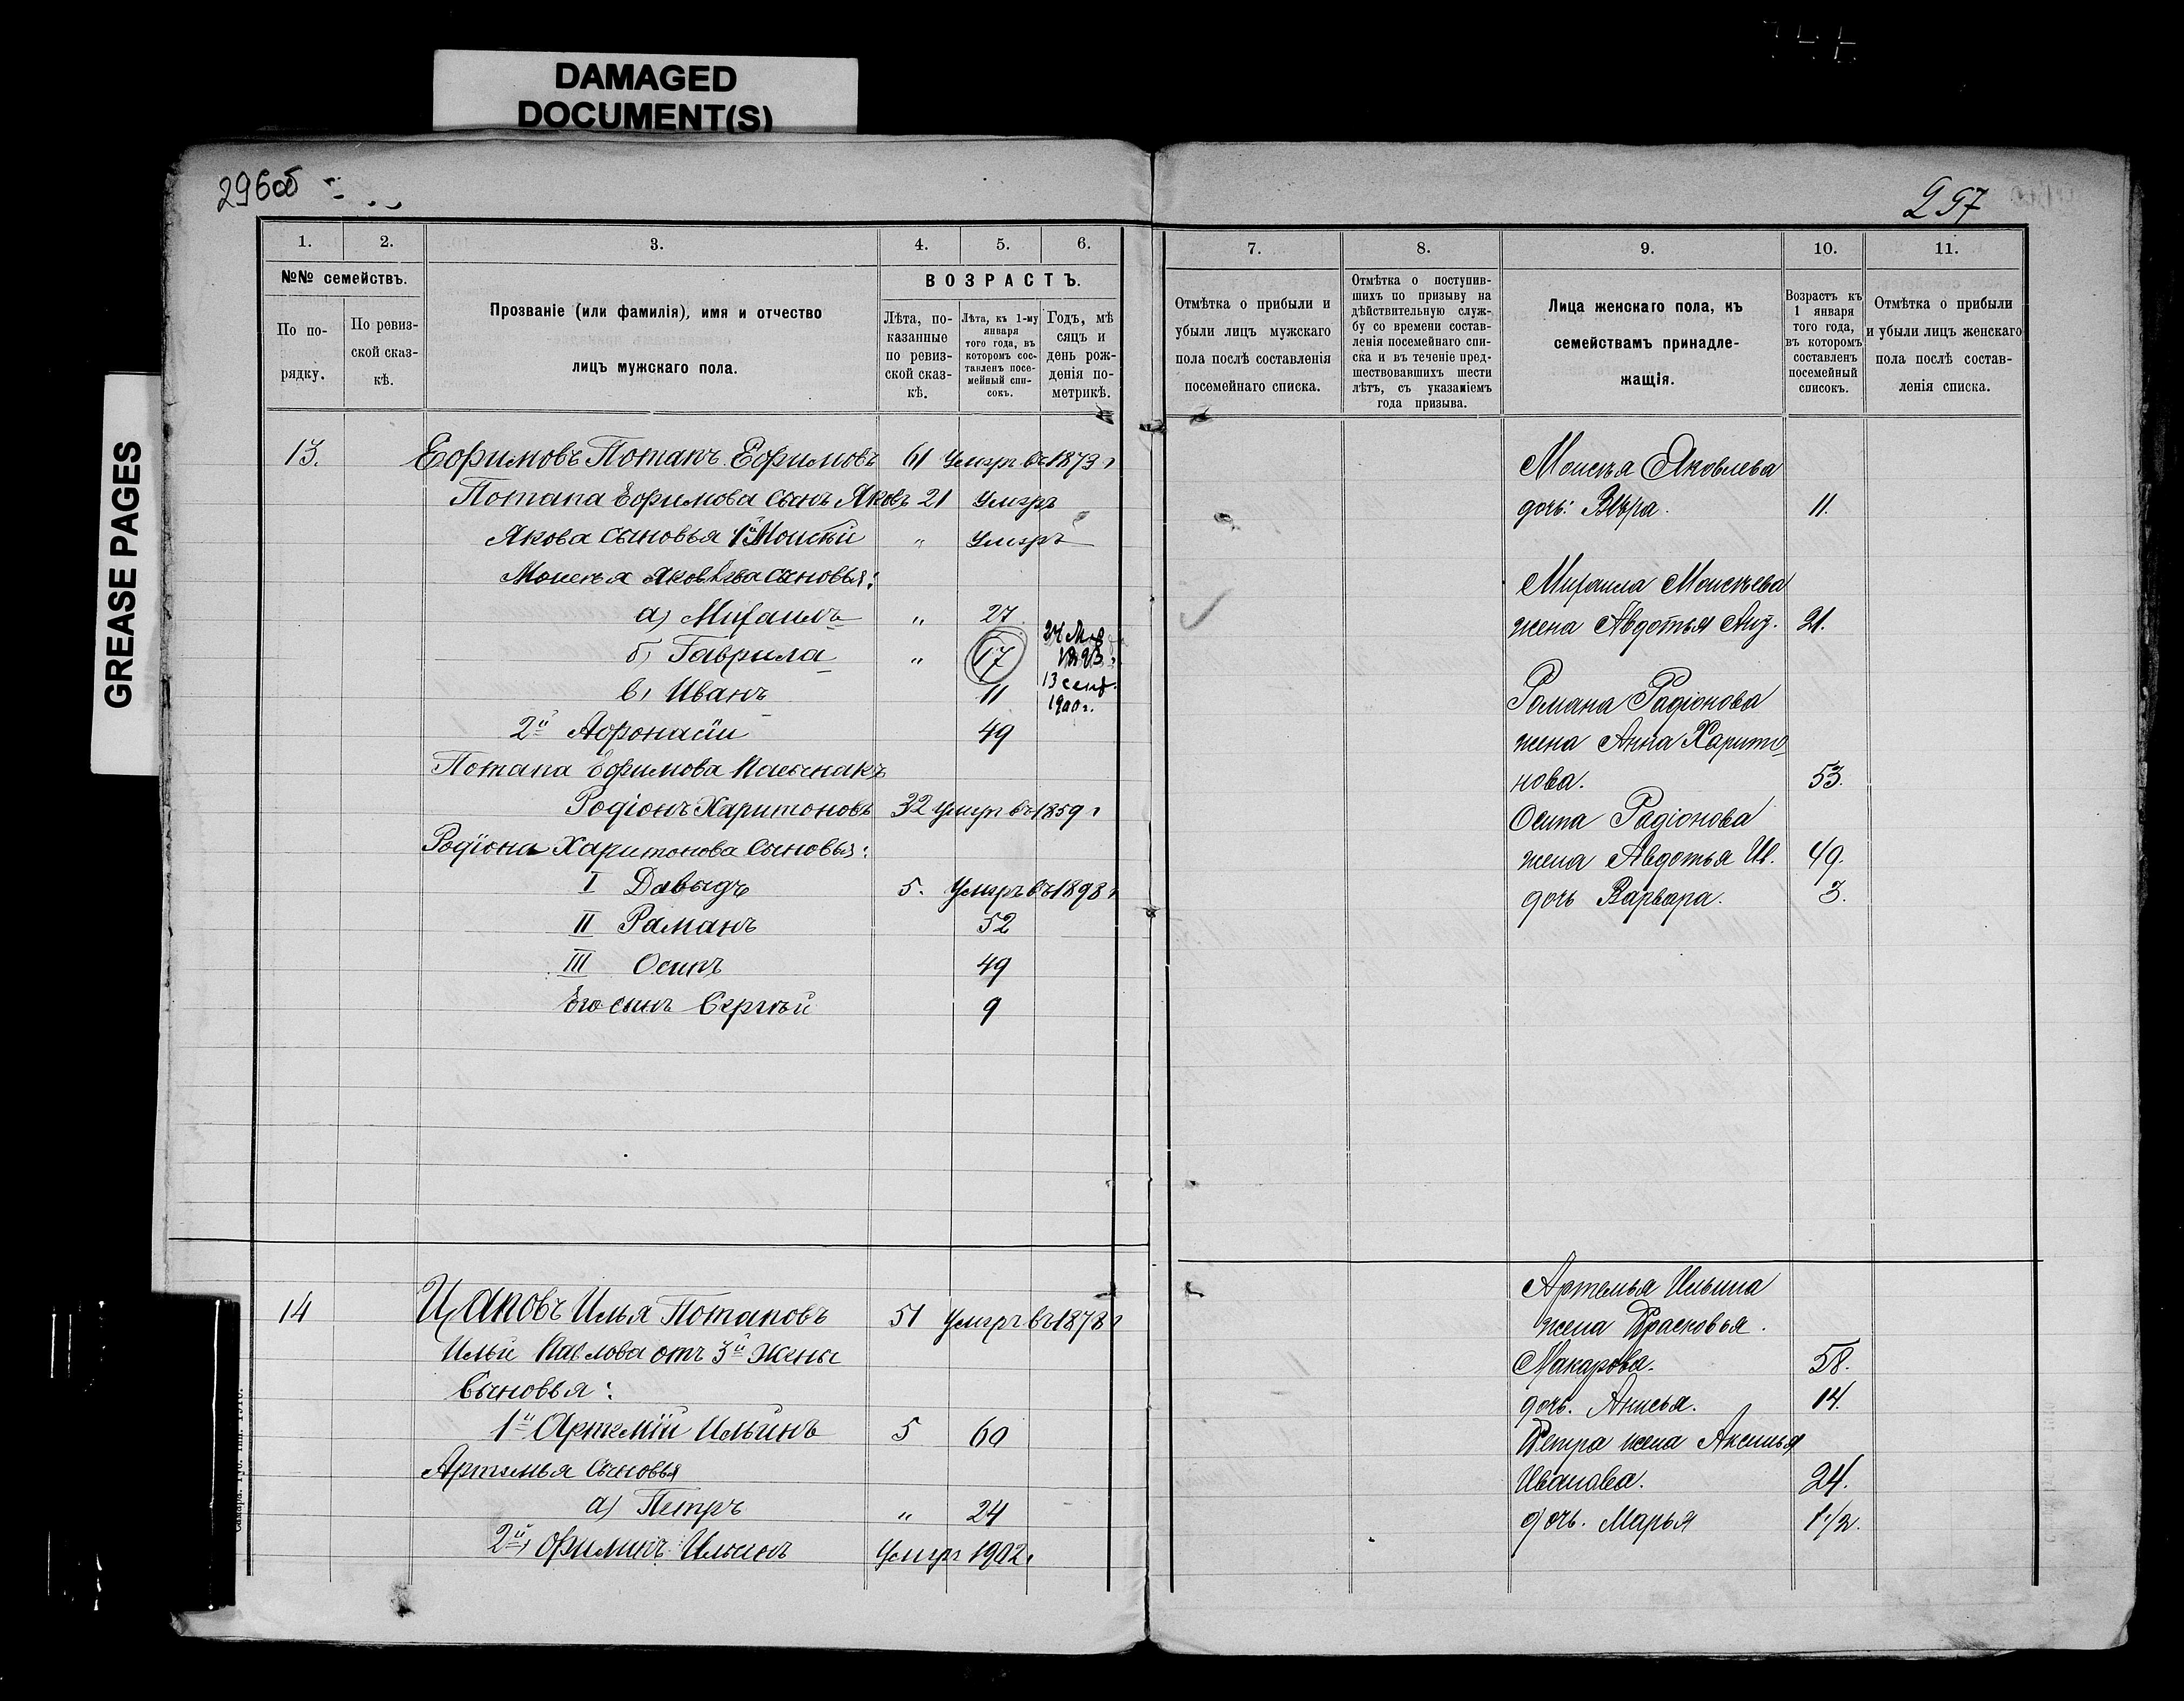 DAMAGED
DOCUMENT(S)
GREASE PAGES
296об
297
1.
2.
3.
4.
5.
6.
№№ семействъ.
По по-
рядку.
По ревиз-
ской сказ-
кѣ.
Прозваніе (или фамилія), имя и отчество
лицъ мужскаго пола.
ВОЗРАСТЪ.
Лѣта, по-
казанные
по ревиз-
ской сказ-
кѣ.
Лѣта, къ 1-му
января
того года, въ
которомъ сос-
тавленъ посе-
мейный спи-
сокъ.
Годъ, мѣ
сяцъ и
день рож-
денія по-
метрикѣ.
13. Ефимовъ Потапъ Ефимовъ 61 Умеръ въ 1873 г
Потапа Ефимова сынъ Яковъ 21 Умеръ
Якова сыновья 1й Моисѣй " Умеръ
Моисея Яковлева сыновья:
а) Михаилъ " 27
б) Гаврила " 17
в) Иванъ 11 13 сент.
1900 г.
2й Афонасій 49
Потапа Ефимова
Родіонъ Харитоновъ 32 Умеръ въ 1859 г
Родіона Харитонова сыновья:
I Давыдъ 5. Умеръ въ 1898 г
II Раманъ 52
III Осипъ 49
Его сынъ Сергѣй 9
14 Цаповъ Илья Потаповъ 51 Умеръ въ 1878 г
Ильи Павлова отъ 3й жены
Сыновья:
1й Артемій Ильинъ 5 60
Артемья Сыновья
а) Петръ " 24
2й, Филипъ Ильинъ Умеръ 1902 г
7.
8.
9.
10.
11.
Отмѣтка о прибыли и
убыли лицъ мужскаго
пола послѣ составленія
посемейнаго списка.
Отмѣтка о поступив-
шихъ по призыву на
дѣйствительную служ-
бу со времени состав-
ленія посемейнаго спи-
ска и въ теченіе пред-
шествовавшихъ шести
лѣтъ, съ указаніемъ
года призыва.
Лица женскаго пола, къ
семействамъ принадле-
жащія.
Возрастъ къ
1 января
того года,
въ которомъ
составленъ
посемейный
списокъ.
Отмѣтка о прибыли
и убыли лицъ женскаго
пола послѣ состав-
ленія списка.
Моисея Яковлева
дочь: Вѣра. 11.
Михаила Моисѣева
жена Авдотья 21.
Романа Радіонова
жена Анна Харито
нова. 53.
Осипа Радіонова
жена Авдотья Ив. 49.
дочь Варвара. 3.
Артемья Ильина
жена Прасковья.
Макарова. 58.
дочь. Анисья. 14.
Петра жена Аксинья
Иванова. 24.
дочь. Марья 1 1/2.